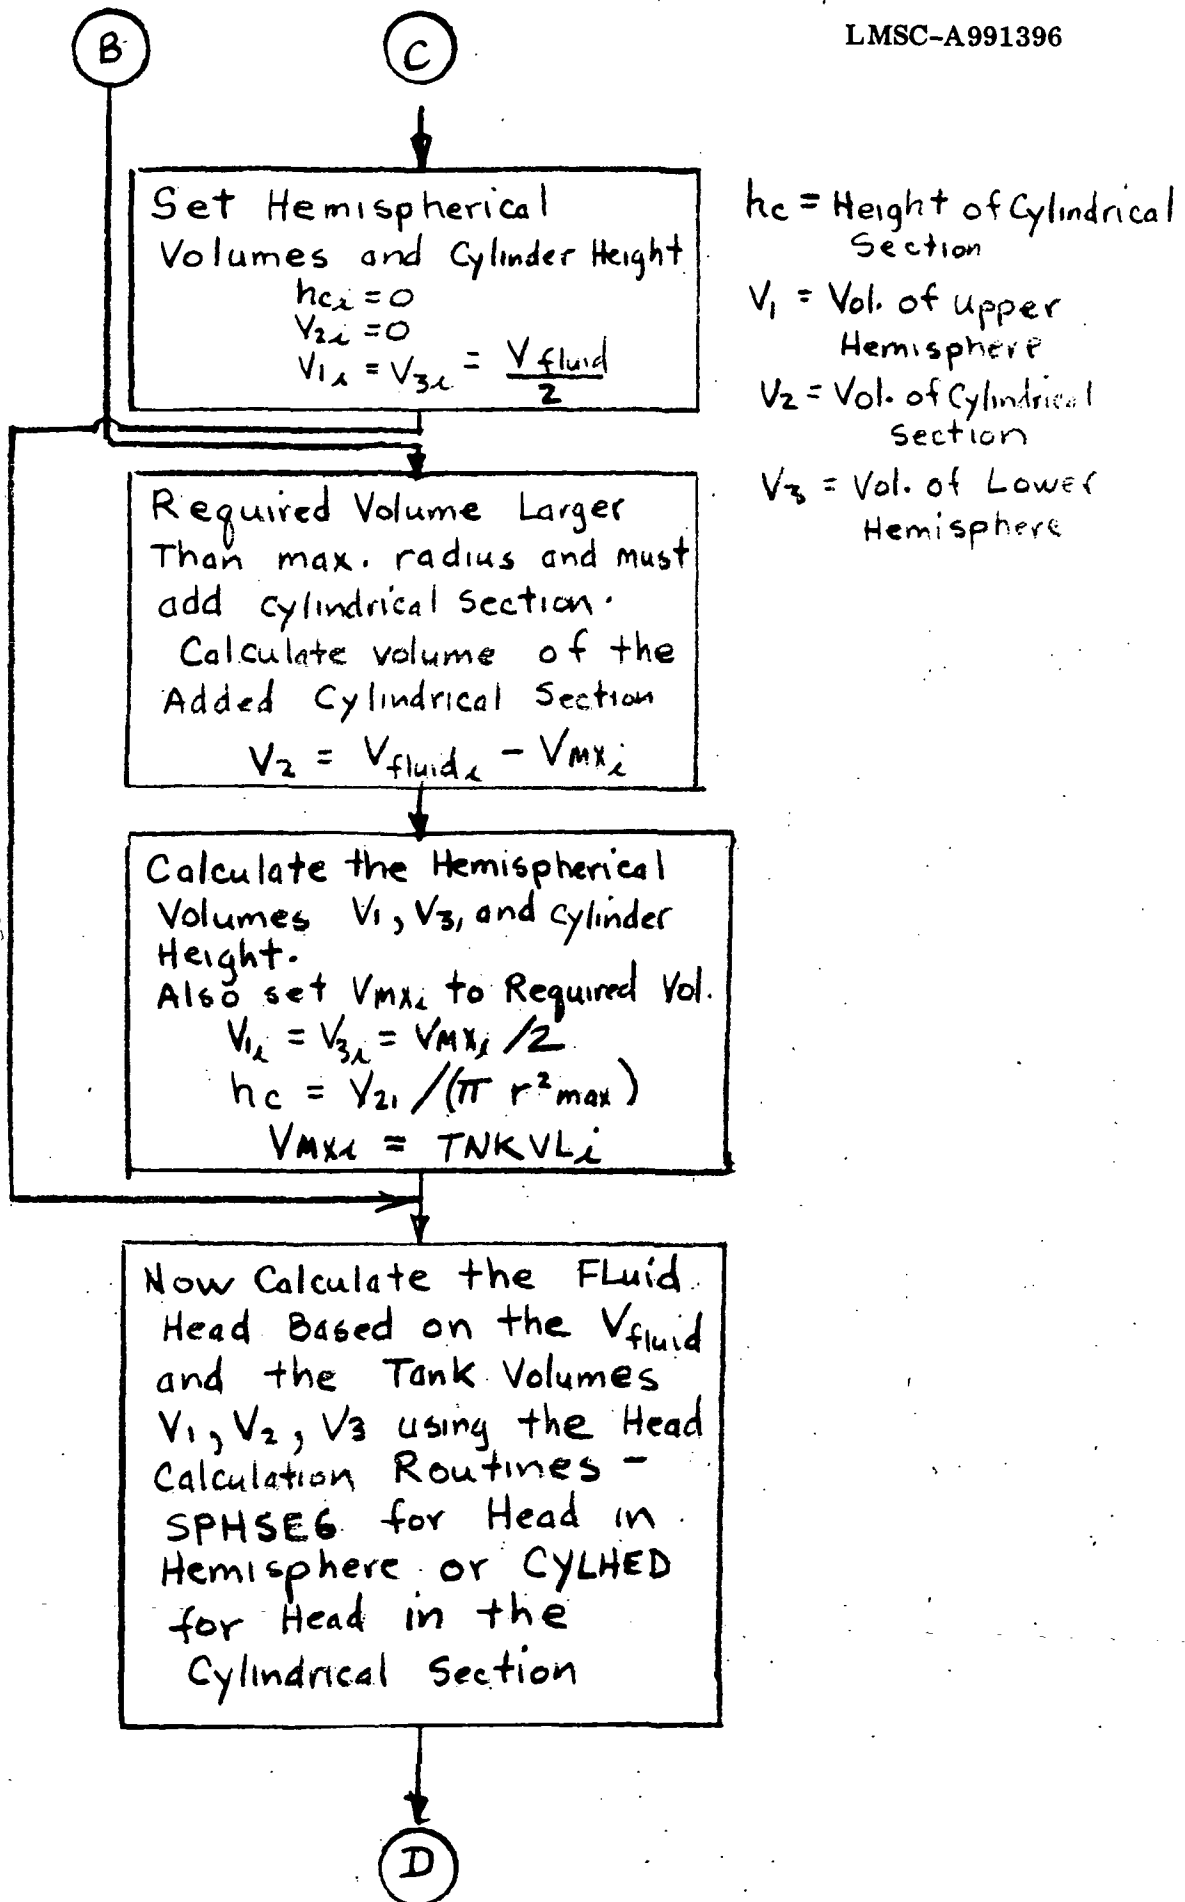 LMSC-A991396
B
C
Set Hemispherical
Volumes and Cylinder Height
hci = 0
V2i = 0
V1i = V3i = Vfluid / 2
hc = Height of Cylindrical
Section
V1 = Vol. of upper
Hemisphere
V2 = Vol. of Cylindrical
Section
V3 = Vol. of Lower
Hemisphere
Required Volume Larger
Than max. radius and must
add cylindrical section.
Calculate volume of the
Added Cylindrical Section
V2 = Vfluidi - VMXi
Calculate the Hemispherical
Volumes V1, V3, and cylinder
Height.
Also set VMXi to Required Vol.
V1i = V3i = VMXi /2
hc = V2i /(π r²max)
VMXi = TNKVLi
Now Calculate the FLuid
Head Based on the Vfluid
and the Tank Volumes
V1, V2, V3 using the Head
Calculation Routines -
SPHSEG for Head in
Hemisphere or CYLHED
for Head in the
Cylindrical Section
D